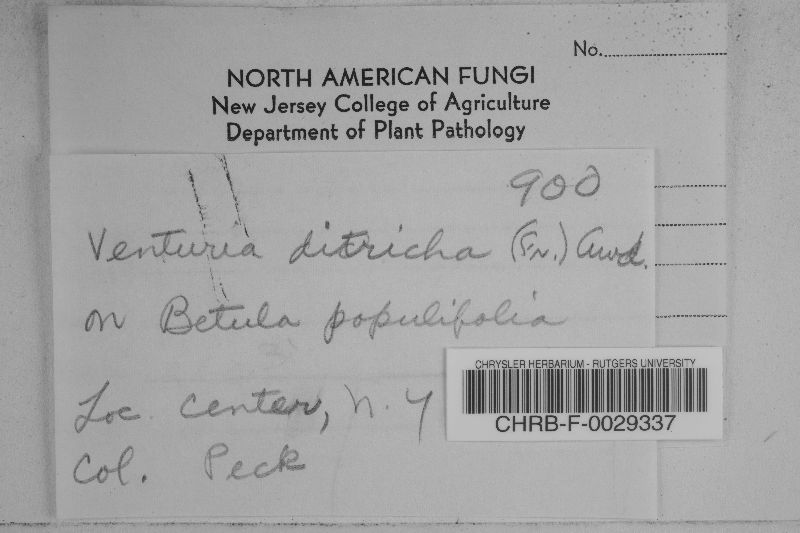 No.
NORTH AMERICAN FUNGI
New Jersey College of Agriculture
Department of Plant Pathology
900
Venturia ditricha (Fr.) Awd.
on Betula populifolia
Loc. Center, N.Y
Col. Peck
CHRYSLER HERBARIUM - RUTGERS UNIVERSITY
CHRB-F-0029337